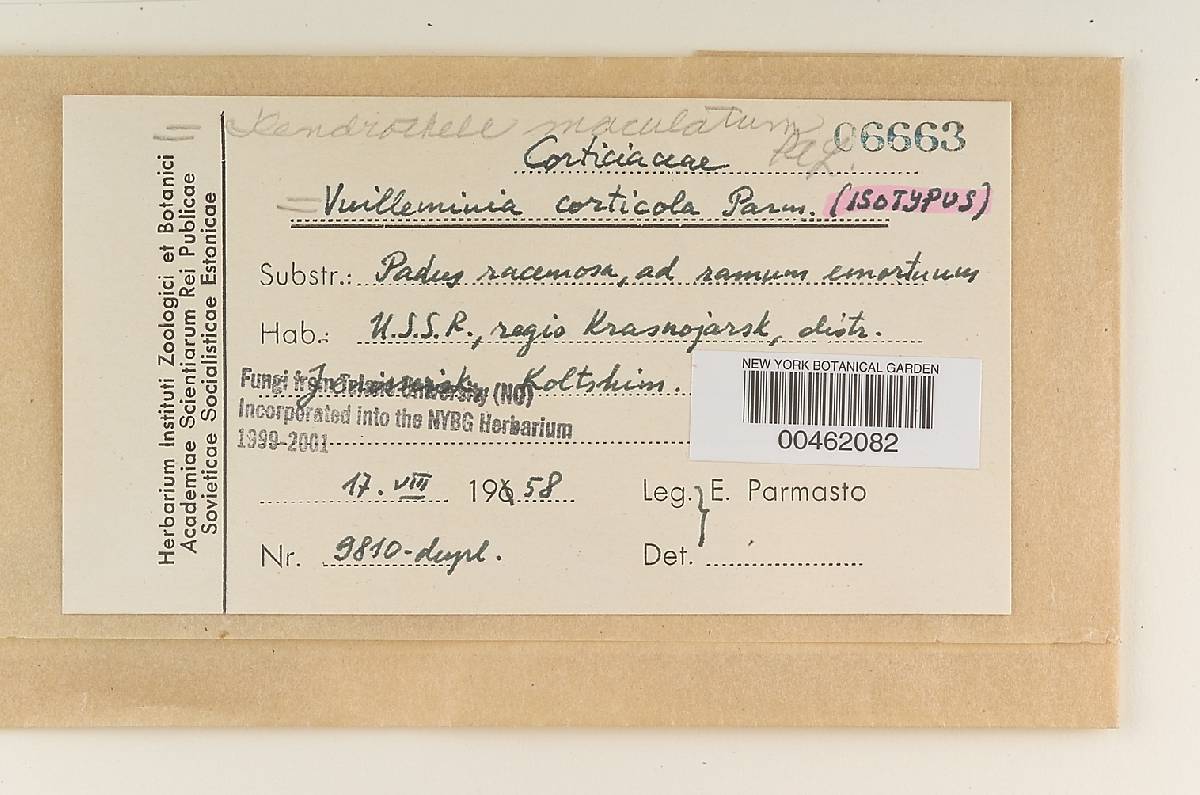 = Dendrothele maculatum
06663
Corticiaceae
= Vuilleminia corticola Parm. (ISOTYPUS)
Substr.: Padus racemosa, ad ramum emortuum
Hab.: U.S.S.R., regio Krasnojarsk, distr.
Koltshim.
Fungi from Tulane University (NO)
Incorporated into the NYBG Herbarium
1999-2001
NEW YORK BOTANICAL GARDEN
00462082
17. VIII 1958
Leg. E. Parmasto
Nr. 9810-dupl.
Det.
Herbarium Instituti Zoologici et Botanici
Academiae Scientiarum Rei Publicae
Sovieticae Socialisticae Estonicae